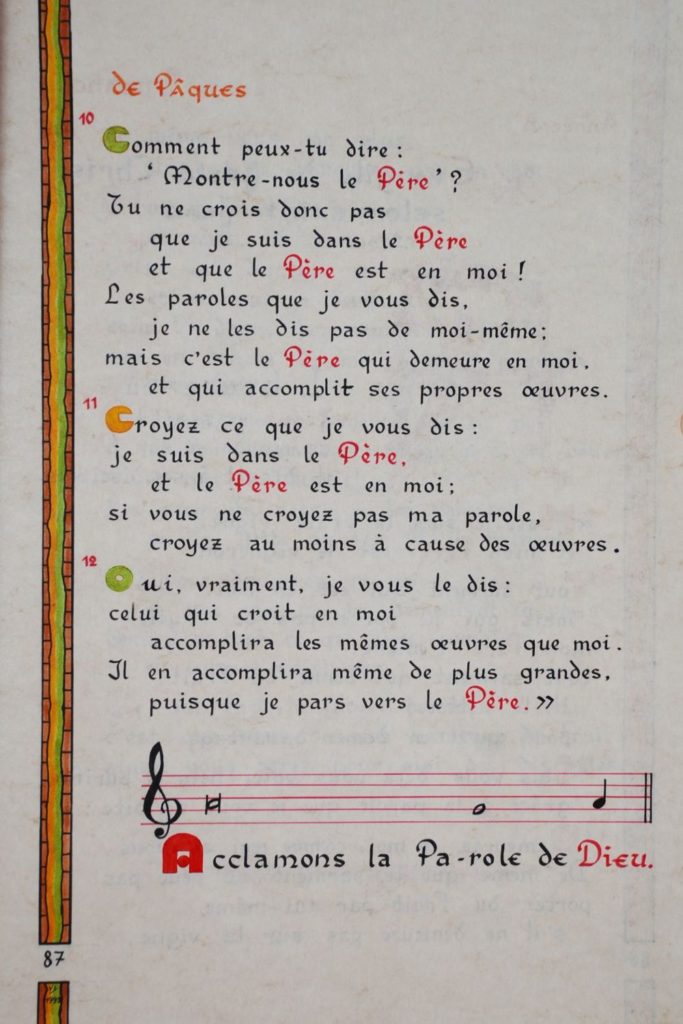 de Pâques
10
Comment peux-tu dire :
‘Montre-nous le Père’ ?
Tu ne crois donc pas
que je suis dans le Père
et que le Père est en moi !
Les paroles que je vous dis,
je ne les dis pas de moi-même ;
mais c’est le Père qui demeure en moi.
et qui accomplit ses propres œuvres.
11
Croyez ce que je vous dis :
je suis dans le Père,
et le Père est en moi ;
si vous ne croyez pas ma parole,
croyez au moins à cause des œuvres.
12
Oui, vraiment, je vous le dis :
celui qui croit en moi
accomplira les mêmes œuvres que moi.
Il en accomplira même de plus grandes,
puisque je pars vers le Père. »
Acclamons la Pa-role de Dieu.
87